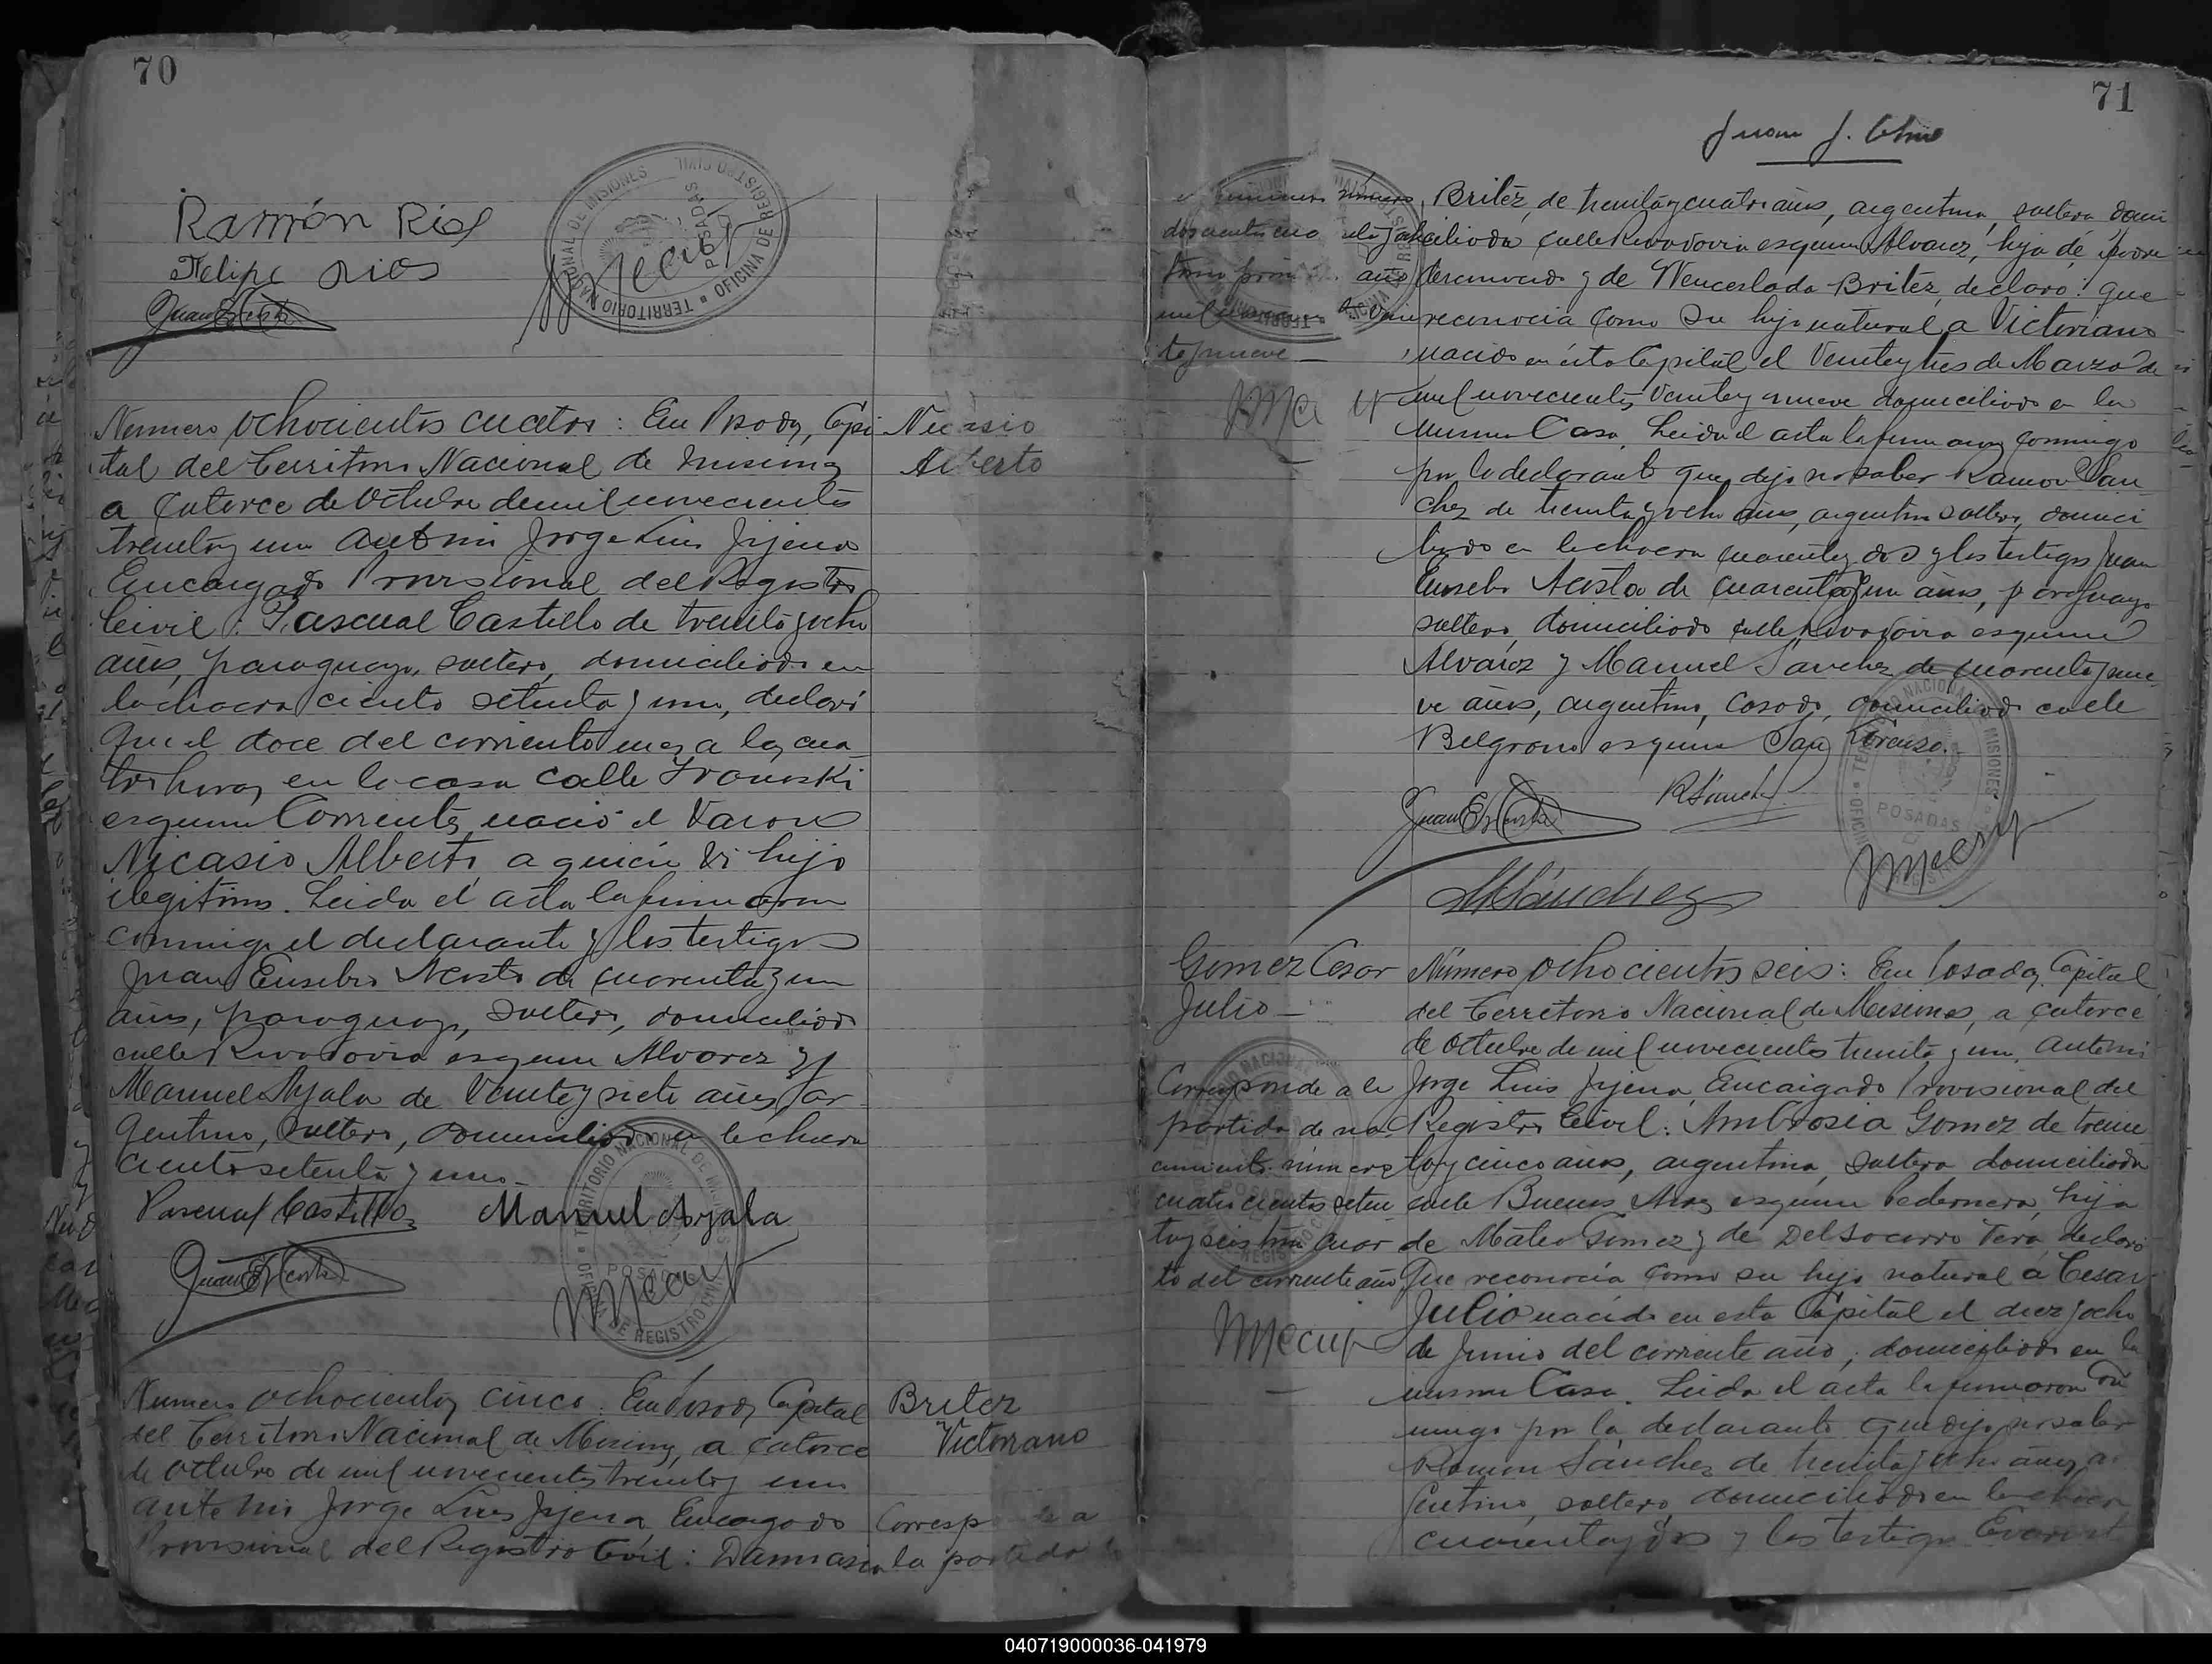 70
Ramón Rios
Felipe Rios
Juan E Acosta
TERRITORIO NACIONAL DE MISIONES
OFICINA DE REGISTRO CIVIL
POSADAS
Numero ochocientos cuatro: En Posadas, Capi
tal del Territorio Nacional de Misiones
a catorce de Octubre de mil novecientos
treinta y uno ante mi Jorge Luis Jijena
Encargado Provisional del Registro
Civil: Pascual Castillo de treinta y ocho
años, paraguayo, soltero, domiciliado en
la chacra ciento setenta y uno, declaró
Que el doce del corriente mes a las cua
tro horas en la casa calle Ivanoski
esquina Corrientes nació el varon
Nicasio Alberto, a quien di hijo
ilegitimo. Leida el acta la firmaron
conmigo el declarante y los testigos
Juan Eusebio Acosta de cuarenta y un
años, paraguayo, soltero, domiciliado
calle Rivadavia esquina Alvarez y
Manuel Ayala de veinte y siete años, ar
gentino, soltero, domiciliado en la chacra
ciento setenta y uno.
Nicasio
Alberto
Pascual Castillo Manuel Ayala
Juan E Acosta
Numero ochocientos cinco. En Posadas Capital
del Territorio Nacional de Misiones, a catorce
de Octubre de mil novecientos treinta y uno
ante mi Jorge Luis Jijena Encargado
Provisional del Registro Civil: Damasia
Britez
Victoriano
Corresponde a
la partida
71
Juan J.
Britez, de treinta y cuatro años, argentina, soltera domi
ciliada calle Rivadavia esquina Alvarez, hija de padre
desconocido y de Wenceslada Britez, declaro: Que
reconocia como su hijo natural a Victoriano
nacido en esta Capital el veinte y tres de Marzo de
mil novecientos veinte y nueve domiciliado en la
misma Casa. Leida el acta la firmaron conmigo
por la declarante que dijo no saber Ramon San
chez de treinta y ocho años, argentino soltero, domici
liado en la chacra cuarenta y dos y los testigos Juan
Eusebio Acosta de cuarenta y un años, paraguayo
soltero, domiciliado calle Rivadavia esquina
Alvarez y Manuel Sanchez de cuarenta y nue
ve años, argentino, casado, domiciliado calle
Belgrano esquina San Lorenzo.
Juan E Acosta RSanchez
MSánchez
Gomez Cesar
Julio
Corresponde a la
partida de na
cimiento número
cuatrocientos seten
ta y seis tomo cuar
to del corriente año
Número ochocientos seis: En Posadas Capital
del Territorio Nacional de Misiones, a catorce
de Octubre de mil novecientos treinta y uno, ante mi
Jorge Luis Jijena, Encargado Provisional del
Registro Civil: Ambrosia Gomez de trein
ta y cinco años, argentina, soltera domiciliada
calle Buenos Aires esquina Pedernera, hija
de Mateo Gomez y de Del Socorro Vera, declaró
Que reconocía como su hijo natural a Cesar
Julio nacido en esta Capital el diez y ocho
de Junio del corriente año, domiciliado en la
misma Casa. Leida el acta la firmaron con
migo por la declarante que dijo no saber
Ramon Sánchez de treinta y ocho años, ar
gentino, soltero, domiciliado en la chacra
cuarenta y dos y los testigos Evarist
040719000036-041979